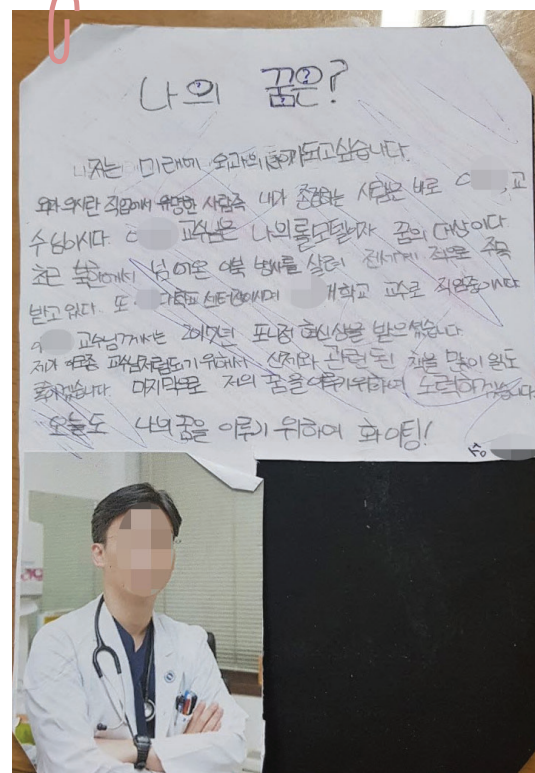 나의 꿈은?
저는 미래에 외과의사가되고싶습니다.
외과의사란 직업에서 유명한 사람즉 내가 존경하는 사람은 바로 교
수님이시다. 교수님은 나의롤모델이자 꿈의 대상이다
최근 북한에서 넘어온 이북 병사를 살려 전세계 적으로 주목
받고 있다. 또 대학교 센터장이시며 대학교 교수로 직업중이시다
교수님께서는 2017년 포니정 혁신상을 받으셨습니다
제가 교수님처럼되기위해서 관련된 책을 많이 읽도
록하겠습니다. 마지막으로 저의 꿈을이루기위하여 노력하겠습니다.
오늘도 나의꿈을 이루기 위하여 화이팅!